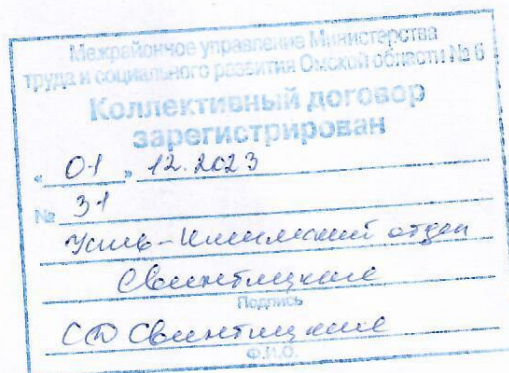 Межрайонное управление Министерства
труда и социального развития Омской области № 6
Коллективный договор
зарегистрирован
« 01 » 12.2023
№ 31
Усть-Ишимский отдел
Подпись
СД
Ф.И.О.